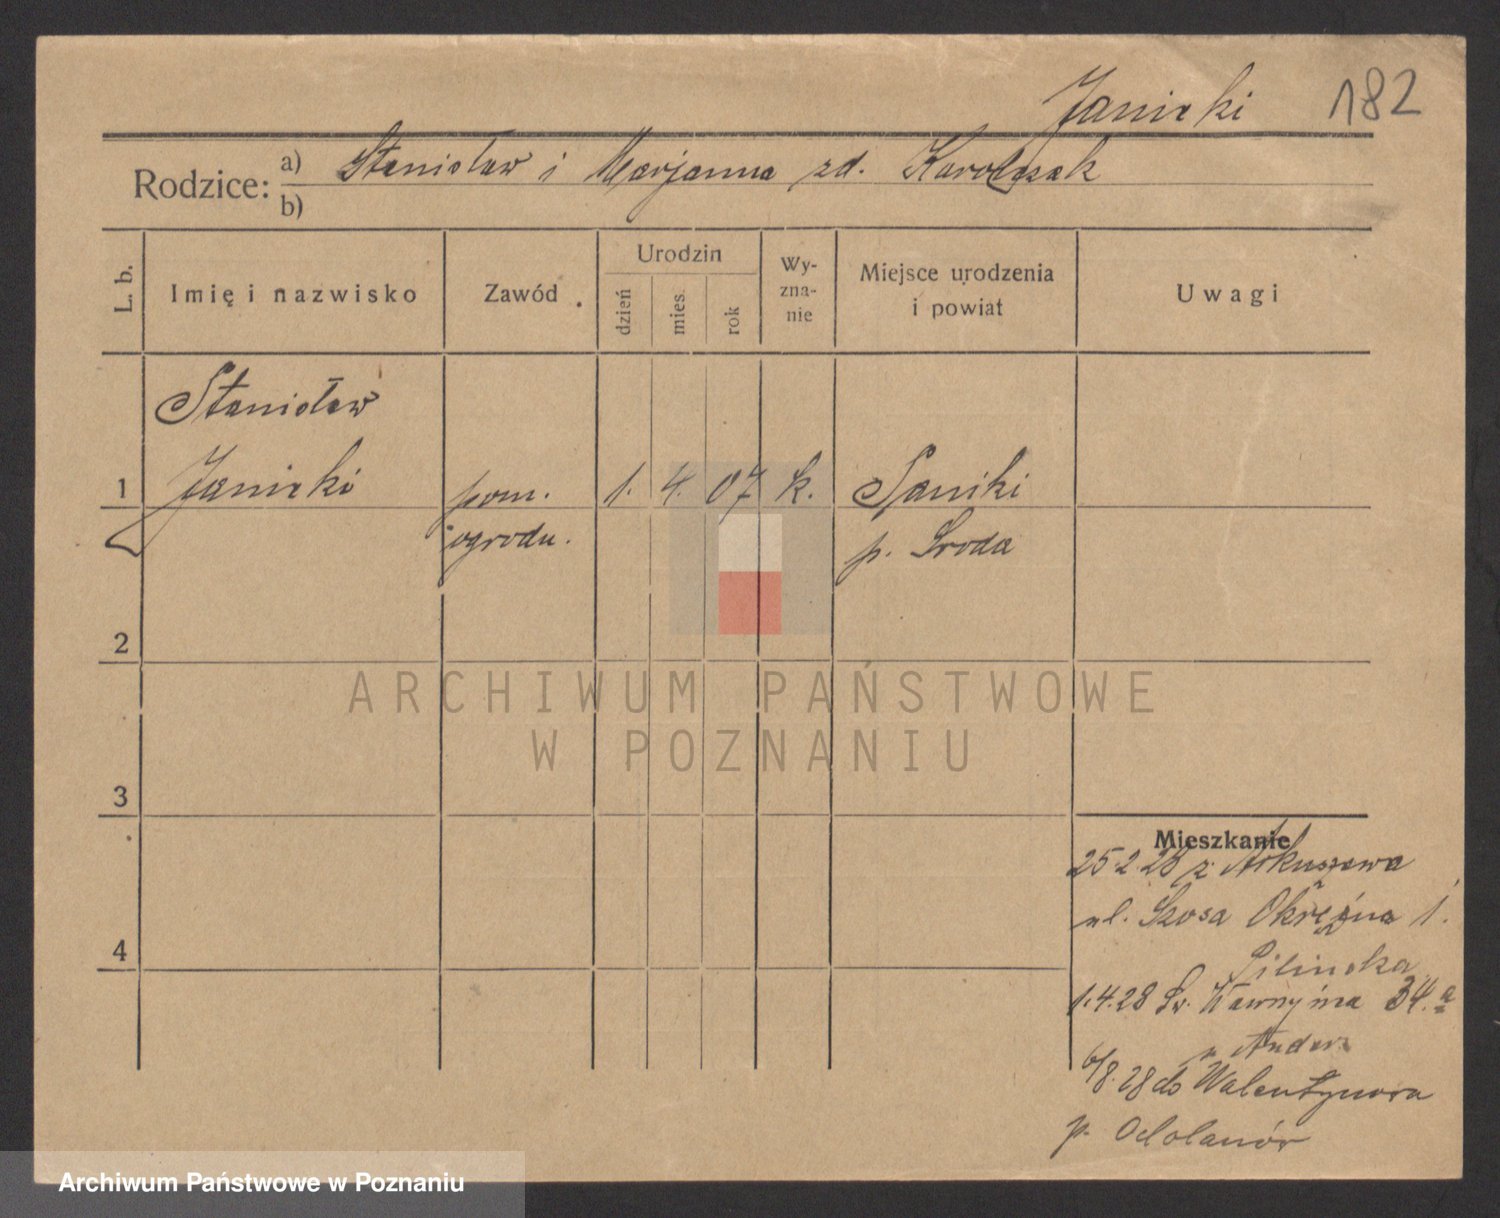 Janicki 182
Rodzice: a) Stanisław i Marjanna zd.
b)
L. b.
Imię i nazwisko
Zawód
Urodzin
dzień
mies.
rok
Wy-
zna-
nie
Miejsce urodzenia
i powiat
Uwagi
Stanisław
1 Janicki pom. 1. 4. 07 k.
ogrodu. p. Środa
2
ARCHIWUM PAŃSTWOWE
W POZNANIU
3
Mieszkanie
25.2.28 z Arkuszewa
ul. Szosa Okrężna 1.
4
Pilinska
1.4.28 Św. Wawrzyńca 34.a
u
6/8.28 do Walentynowa
p. Odolanów
Archiwum Państwowe w Poznaniu